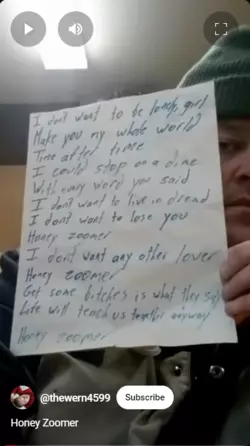 I dont want to be lonely girl
Make you my whole world
Time after time
I could stop on a dime
With every word you said
I dont want to live in dread
I dont want to lose you
Honey zoomer
I dont want any other lover
Honey zoomer
Get some bitches is what they say
Life will teach us together anyway
Honey zoomer
@thewern4599
Subscribe
Honey Zoomer